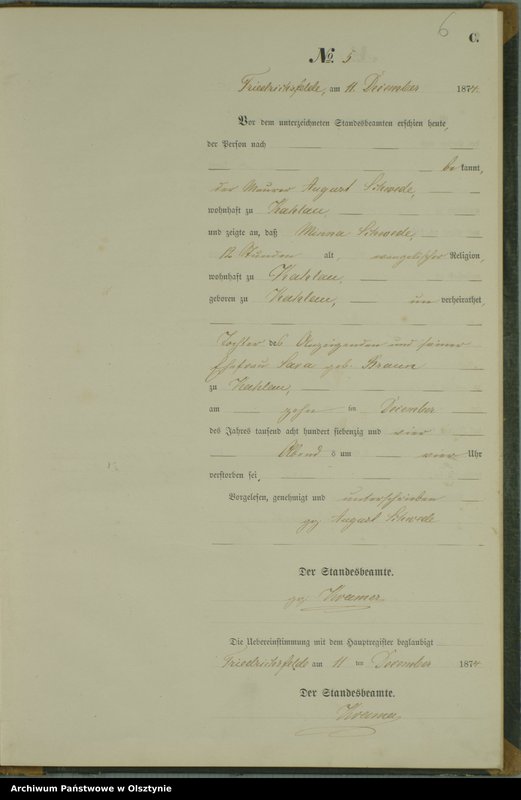 6
C.
№ 5
Friedrichsfelde, am 11. December 1874.
Vor dem unterzeichneten Standesbeamten erschien heute,
der Person nach
be kannt,
der Maurer August Schwede,
wohnhaft zu Kahlau,
und zeigte an, daß Minna Schwede,
12 Stunden alt, evangelischer Religion,
wohnhaft zu Kahlau,
geboren zu Kahlau, un verheirathet,
Tochter des Anzeigenden und seiner
Ehefrau Sara geb. Braun
zu Kahlau,
am zehn im December
des Jahres tausend acht hundert siebenzig und vier
Abend s um vier Uhr
verstorben sei,
Vorgelesen, genehmigt und unterschrieben
gez August Schwede
Der Standesbeamte.
gez Kramer
Die Uebereinstimmung mit dem Hauptregister beglaubigt
Friedrichsfelde am 11 ten December 1874
Der Standesbeamte.
Kramer
Archiwum Państwowe w Olsztynie